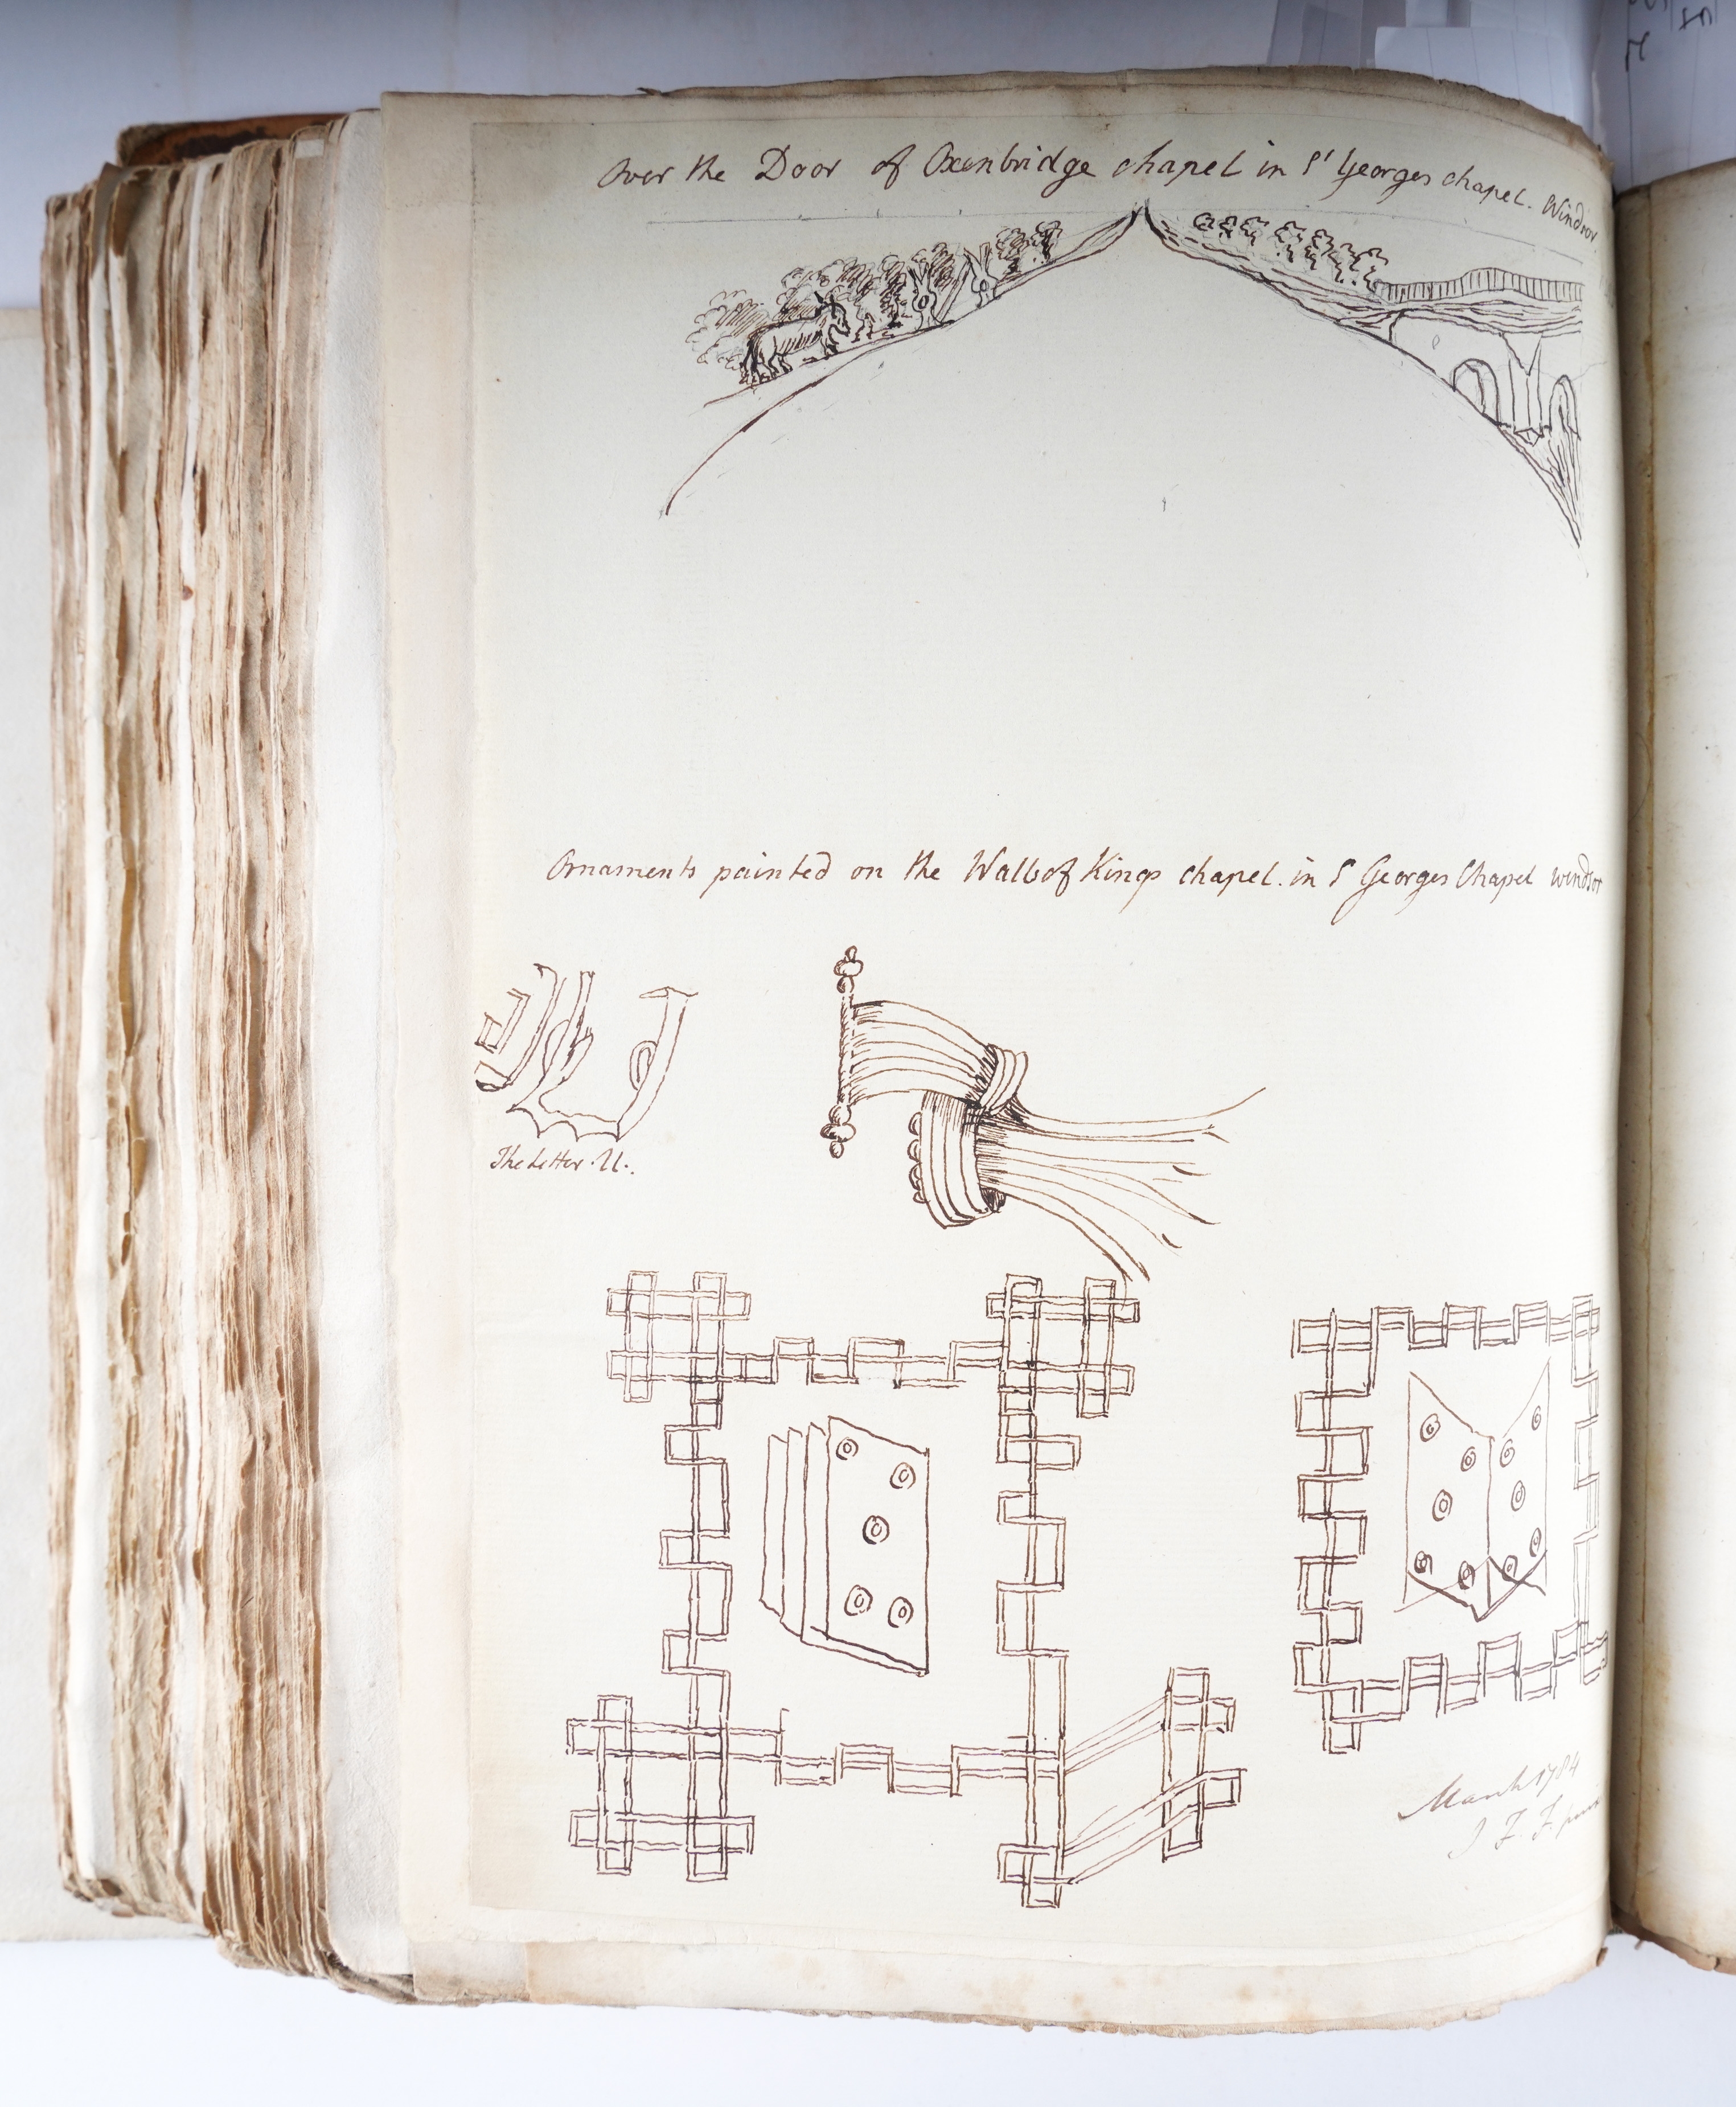 Over the Door of Oxenbridge chapel in St Georges chapel. Windsor
Ornaments painted on the Walls of Kings chapel. in S Georges Chapel windsor
The Letter. U.
March 1784
J F. F